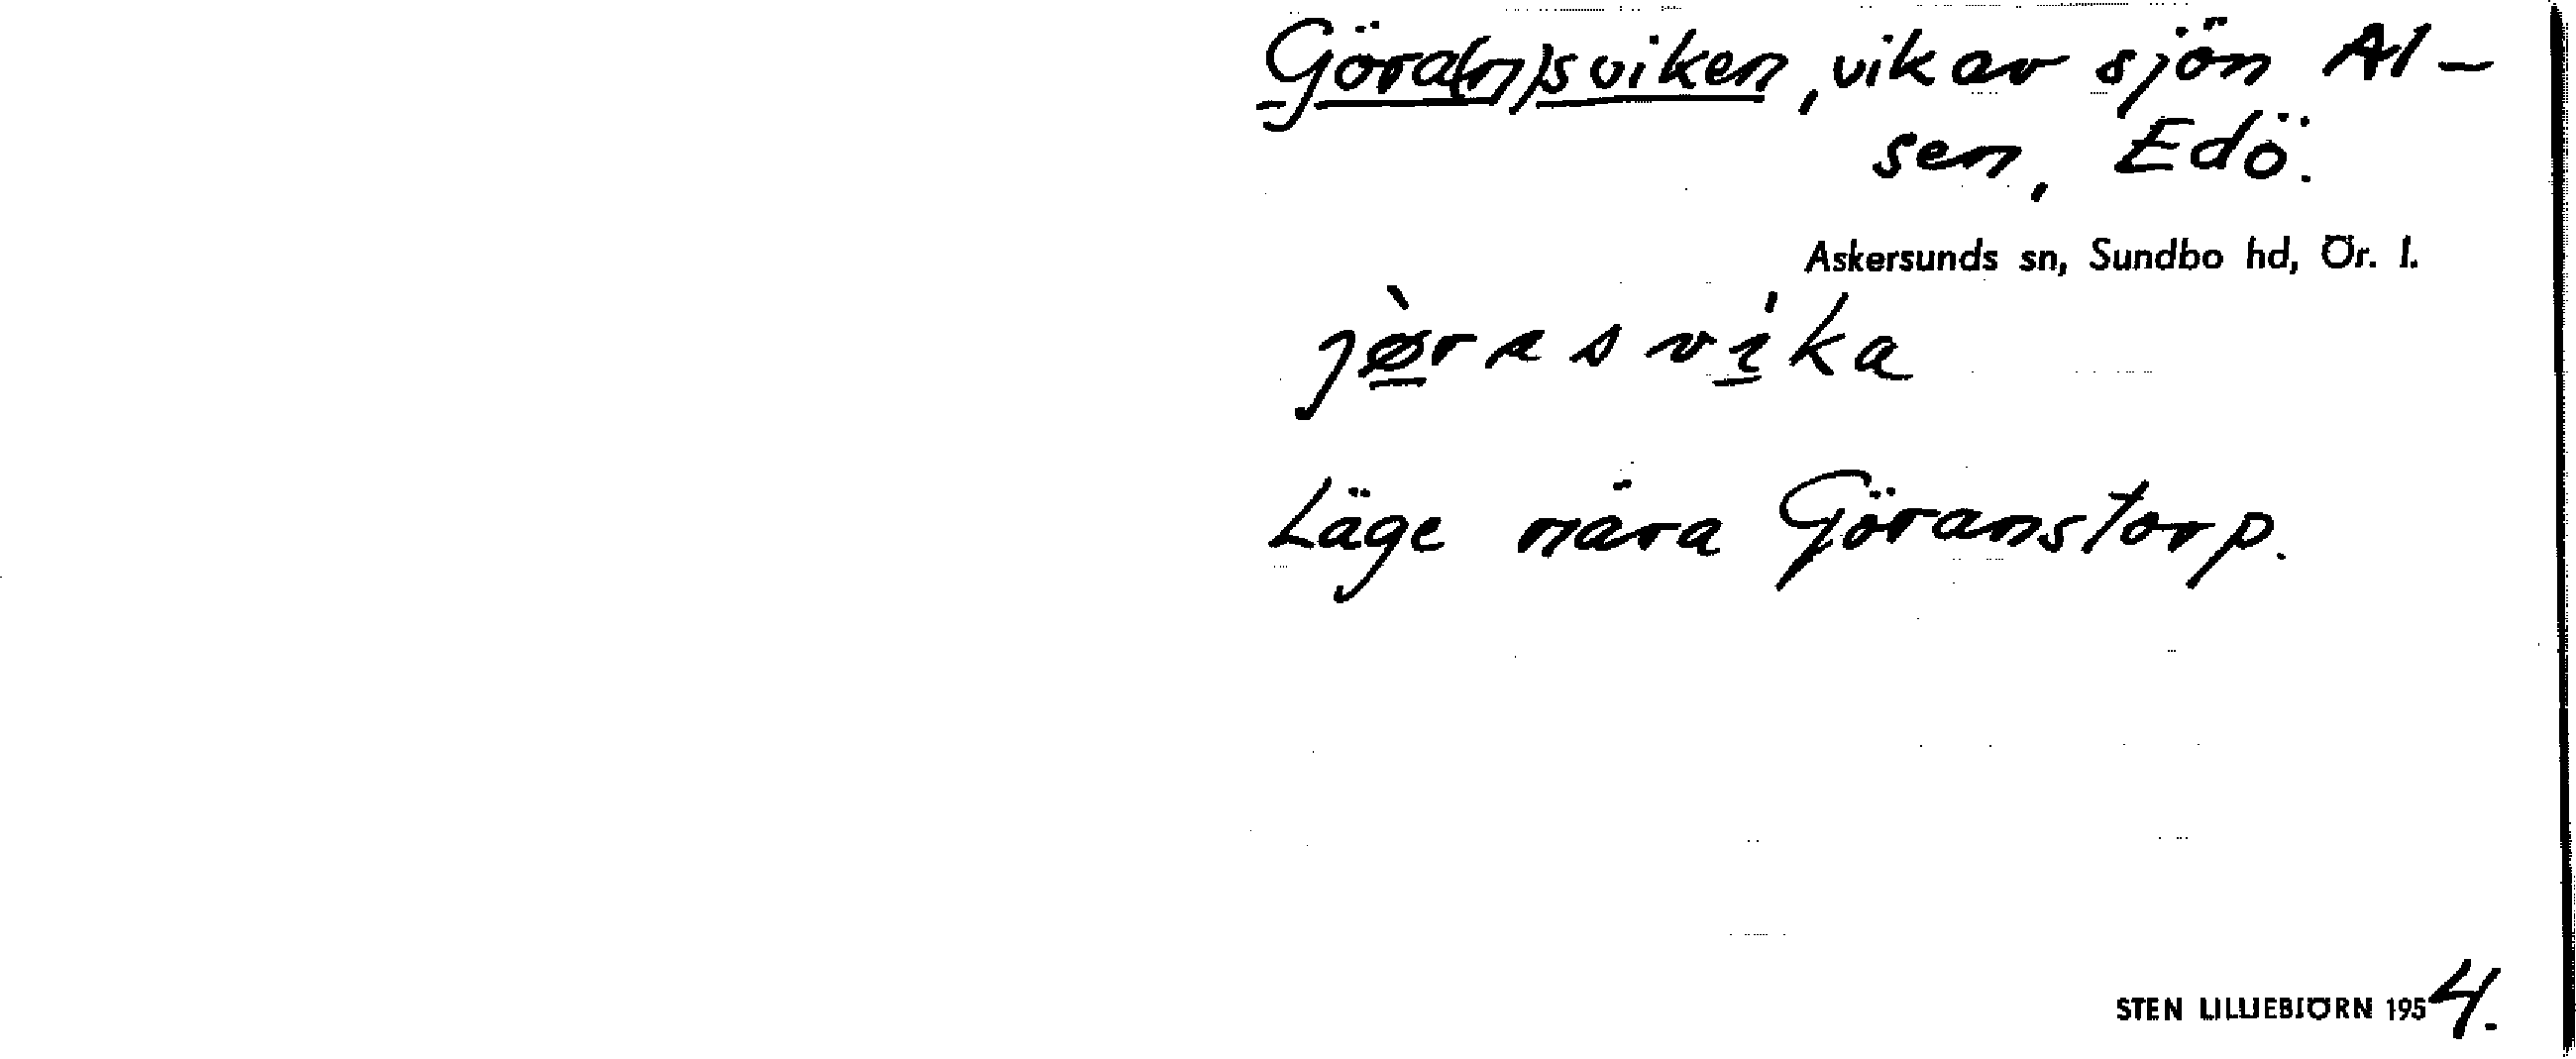 Göra(n)sviken, vik av sjön Al-
sen, Edö.
Askersunds sn, Sundbo hd, Ör. l.
jø̀rasvíka
Läge nära Göranstorp.
STEN LILLIEBJÖRN 1954.